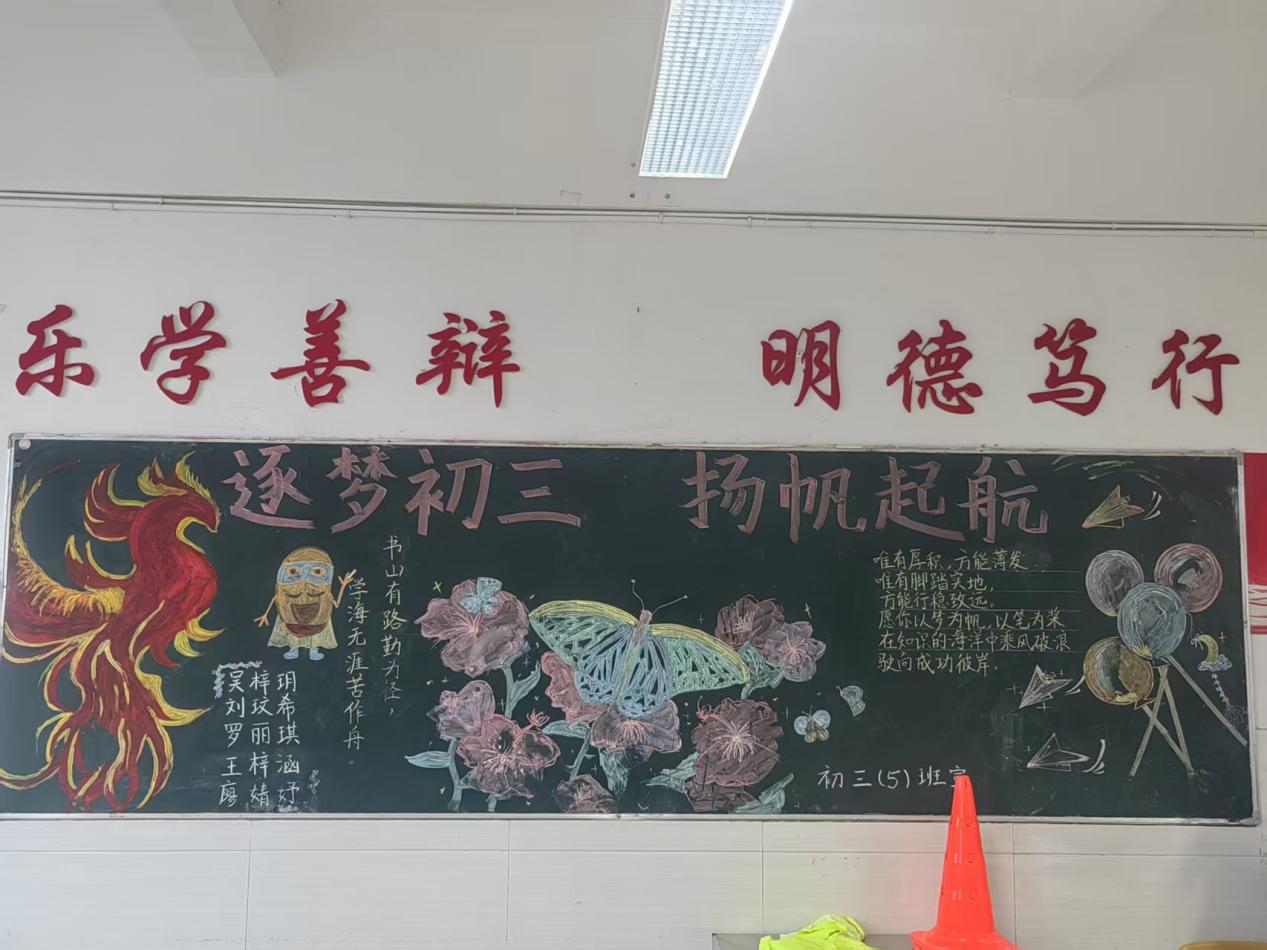 乐学善辩 明德笃行
逐梦初三 扬帆起航
书山有路勤为径，
学海无涯苦作舟。
吴梓玥
刘玟希
罗丽琪
王梓涵
廖婧妤
唯有厚积，方能薄发
唯有脚踏实地，
方能行稳致远。
愿你以梦为帆，以笔为桨
在知识的海洋中乘风破浪
驶向成功彼岸.
初三(5)班